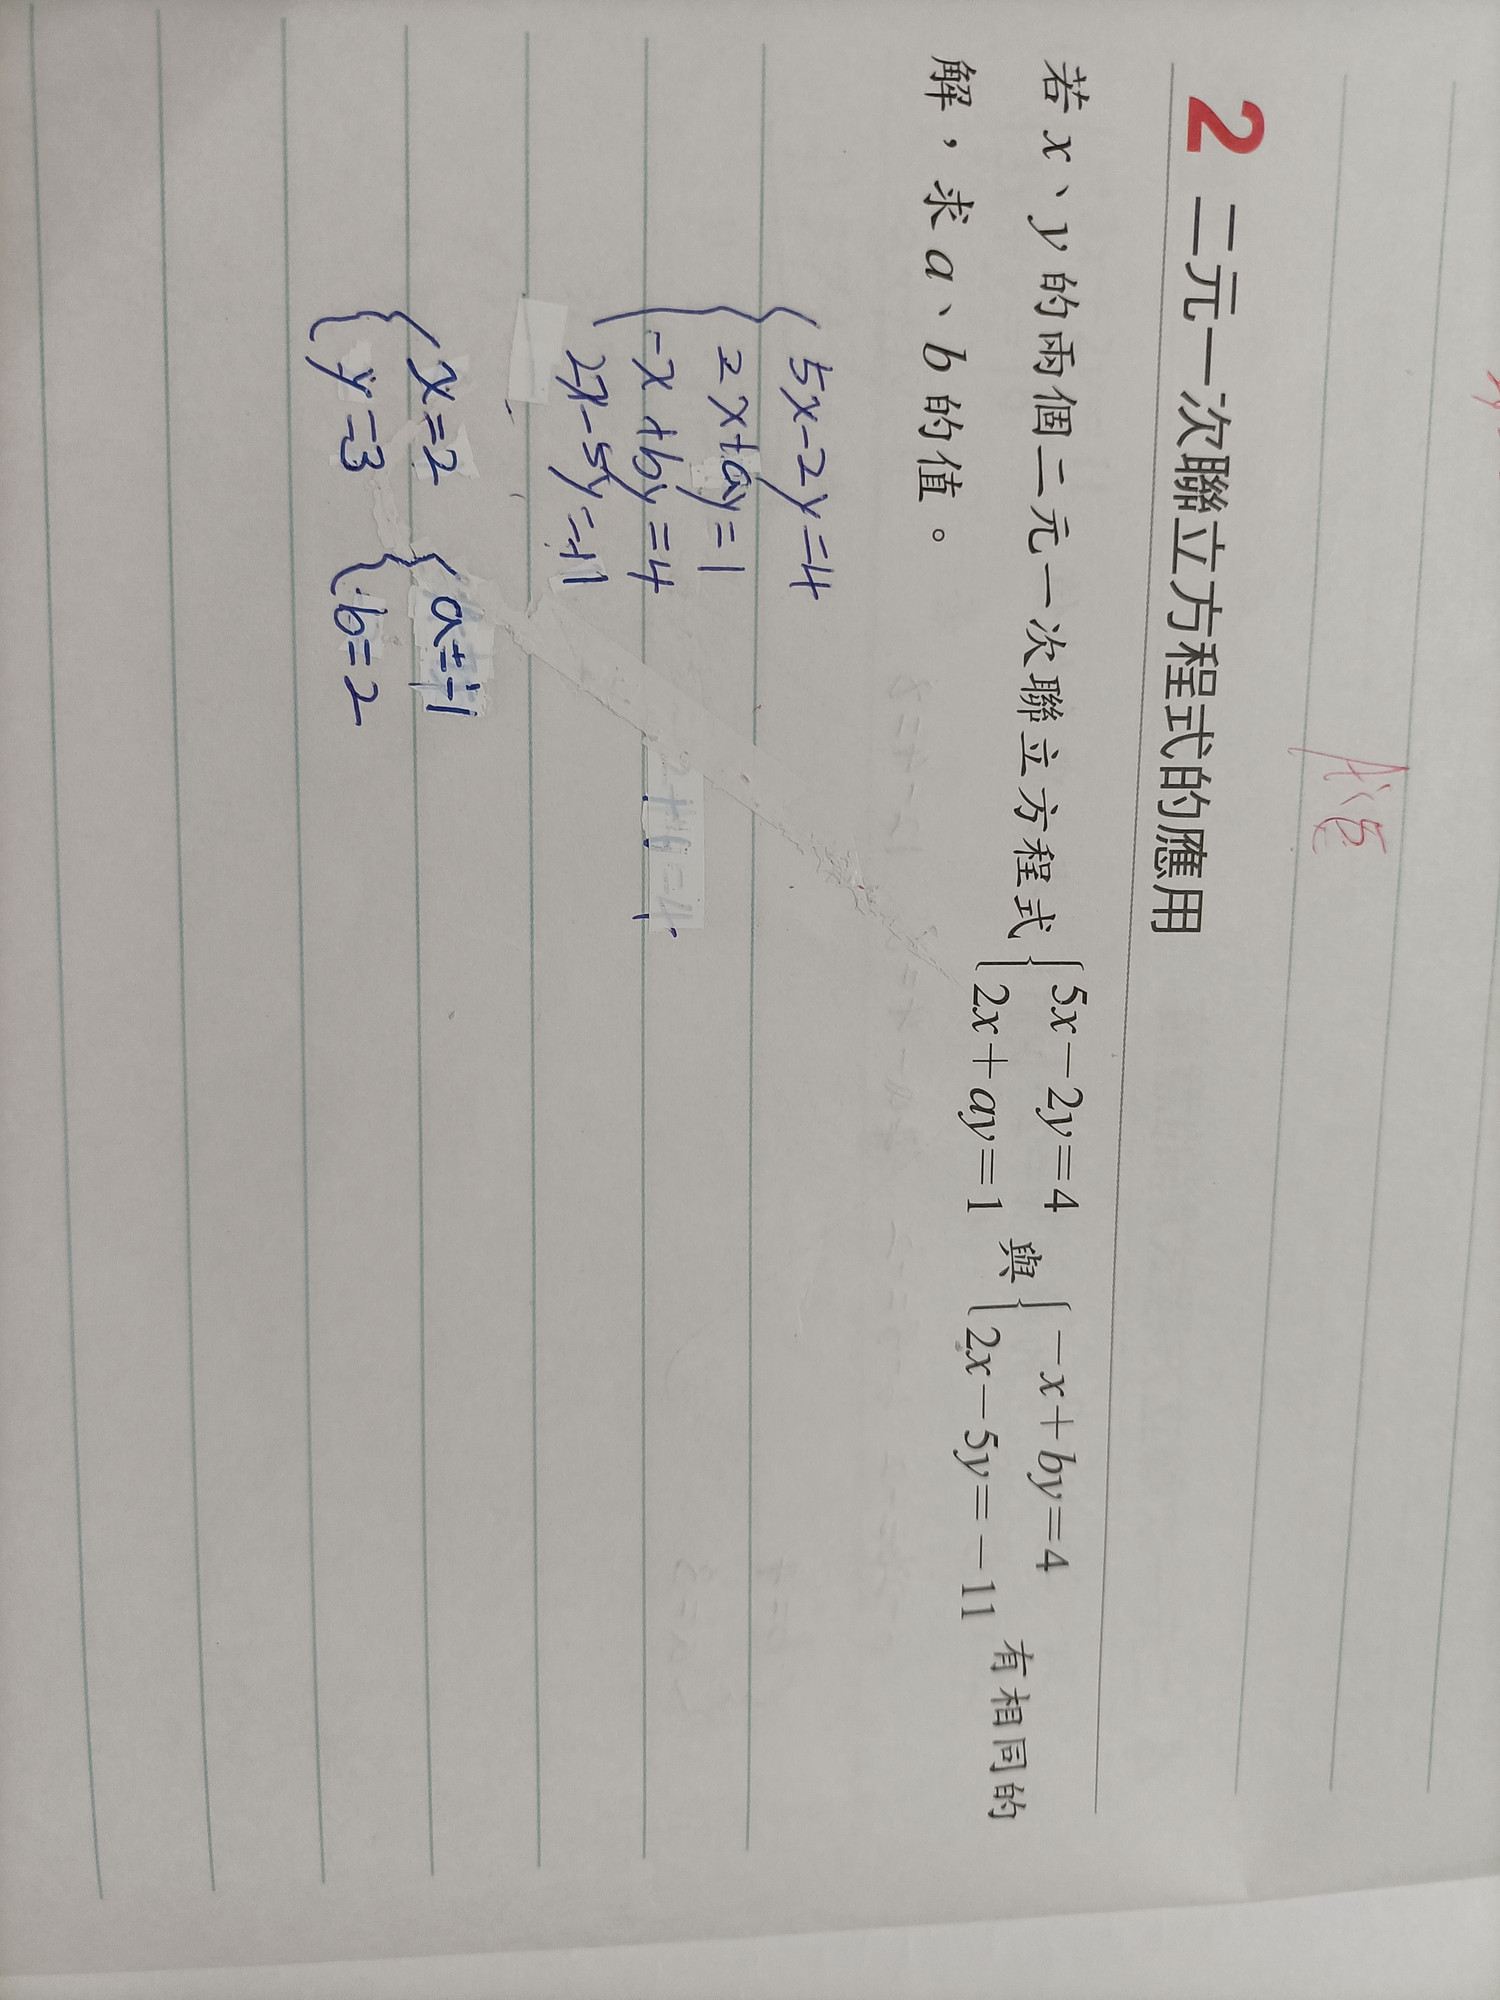 2 二元一次聯立方程式的應用
若x、y的兩個二元一次聯立方程式{5x－2y＝4 2x＋ay＝1 與{－x＋by＝4 2x－5y＝－11 有相同的
解，求a、b的值。
5x-2y=4
2x+ay=1
-x+by=4
2x-5y=-11
x=2
y=3
a=-1
b=2